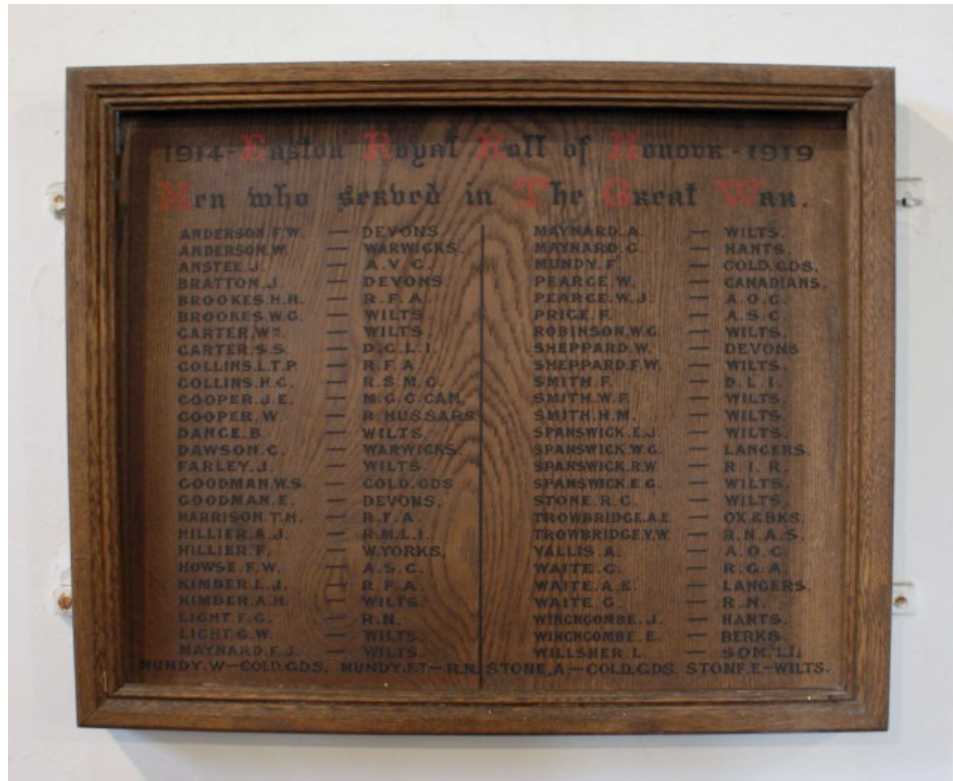 1914-Easton Royal Roll of Honour-1919
Men who served in The Great War.
ANDERSON.F.W. — DEVONS.
ANDERSON.W. — WARWICKS.
ANSTEE.J. — A.V.C.
BRATTON.J. — DEVONS.
BROOKES.H.H. — R.F.A.
BROOKES.W.G. — WILTS.
CARTER.Wm. — WILTS.
CARTER.S.S. — D.C.L.I.
COLLINS.L.T.P. — R.F.A.
COLLINS.H.G. — R.S.M.C.
COOPER.J.E. — M.G.C.CAM.
COOPER.W. — R.HUSSARS.
DANCE.B. — WILTS.
DAWSON.C. — WARWICKS.
FARLEY.J. — WILTS.
GOODMAN.W.S. — COLD.GDS.
GOODMAN.E. — DEVONS.
HARRISON.T.H. — R.F.A.
HILLIER.A.J. — R.M.L.I.
HILLIER.F. — W.YORKS.
HOWSE.F.W. — A.S.C.
KIMBER.L.J. — R.F.A.
KIMBER.A.H. — WILTS.
LIGHT.F.C. — R.N.
LIGHT.G.W. — WILTS.
MAYNARD.F.J. — WILTS.
MAYNARD.A. — WILTS.
MAYNARD.G. — HANTS.
MUNDY.F. — COLD.GDS.
PEARCE.W. — CANADIANS.
PEARCE.W.J. — A.O.C.
PRICE.F. — A.S.C.
ROBINSON.W.G. — WILTS.
SHEPPARD.W. — DEVONS
SHEPPARD.F.W. — WILTS.
SMITH.F. — D.L.I.
SMITH.W.F. — WILTS.
SMITH.H.M. — WILTS.
SPANSWICK.E.J. — WILTS.
SPANSWICK.W.G. — LANCERS.
SPANSWICK.R.W. — R.I.R.
SPANSWICK.E.G. — WILTS.
STONE.R.C. — WILTS.
TROWBRIDGE.A.E — OX&BKS.
TROWBRIDGE.V.W. — R.N.A.S.
VALLIS.A. — A.O.C.
WAITE.C. — R.G.A.
WAITE.A.E. — LANCERS.
WAITE.G. — R.N.
WINCHCOMBE.J. — HANTS.
WINCHCOMBE.E. — BERKS.
WILLSHER.L. — SOM.L.I.
MUNDY.W—COLD.GDS. MUNDY.F.T—R.N. STONE.A—COLD.GDS. STONE.E—WILTS.